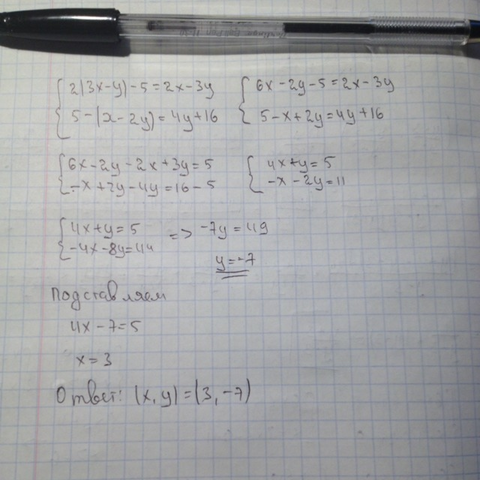 2(3x-y)-5=2x-3y
5-(x-2y)=4y+16
6x-2y-5=2x-3y
5-x+2y=4y+16
6x-2y-2x+3y=5
-x+2y-4y=16-5
4x+y=5
-x-2y=11
4x+y=5
-4x-8y=44
=> -7y=49
y=-7
Подставляем
4x-7=5
x=3
Ответ: (x,y)=(3,-7)